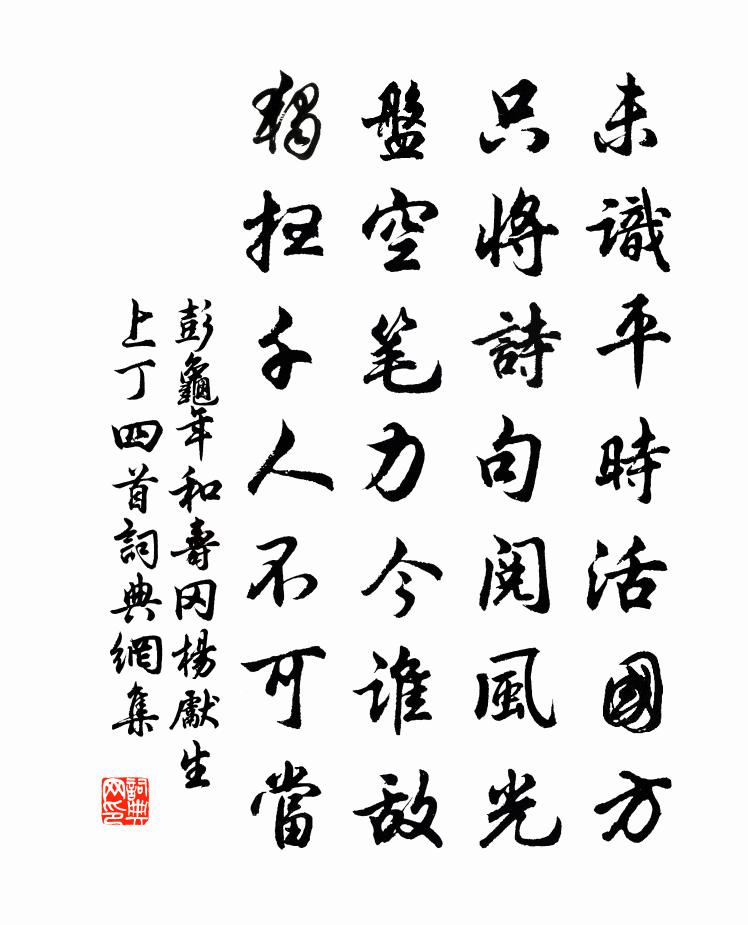 未識平時活國方
只將詩句閱風光
盤空笔力今誰敌
獨扫千人不可當
彭龜年和壽冈楊獻生
上丁四首詞典網集
詞典网印